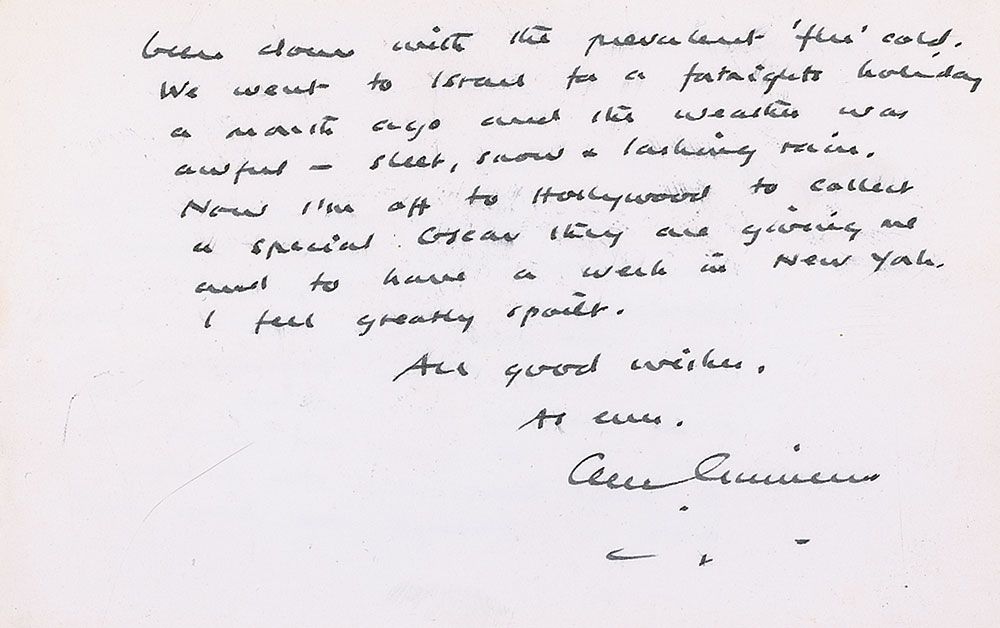 been down with the prevalent 'flu' cold.
We went to Israel for a fortnights holiday
a month ago and the weather was
awful – sleet, snow & lashing rain.
Now I'm off to Hollywood to collect
a special Oscar they are giving me
and to have a week in New York.
I feel greatly spoilt.
All good wishes.
As ever.
Alec Guinness